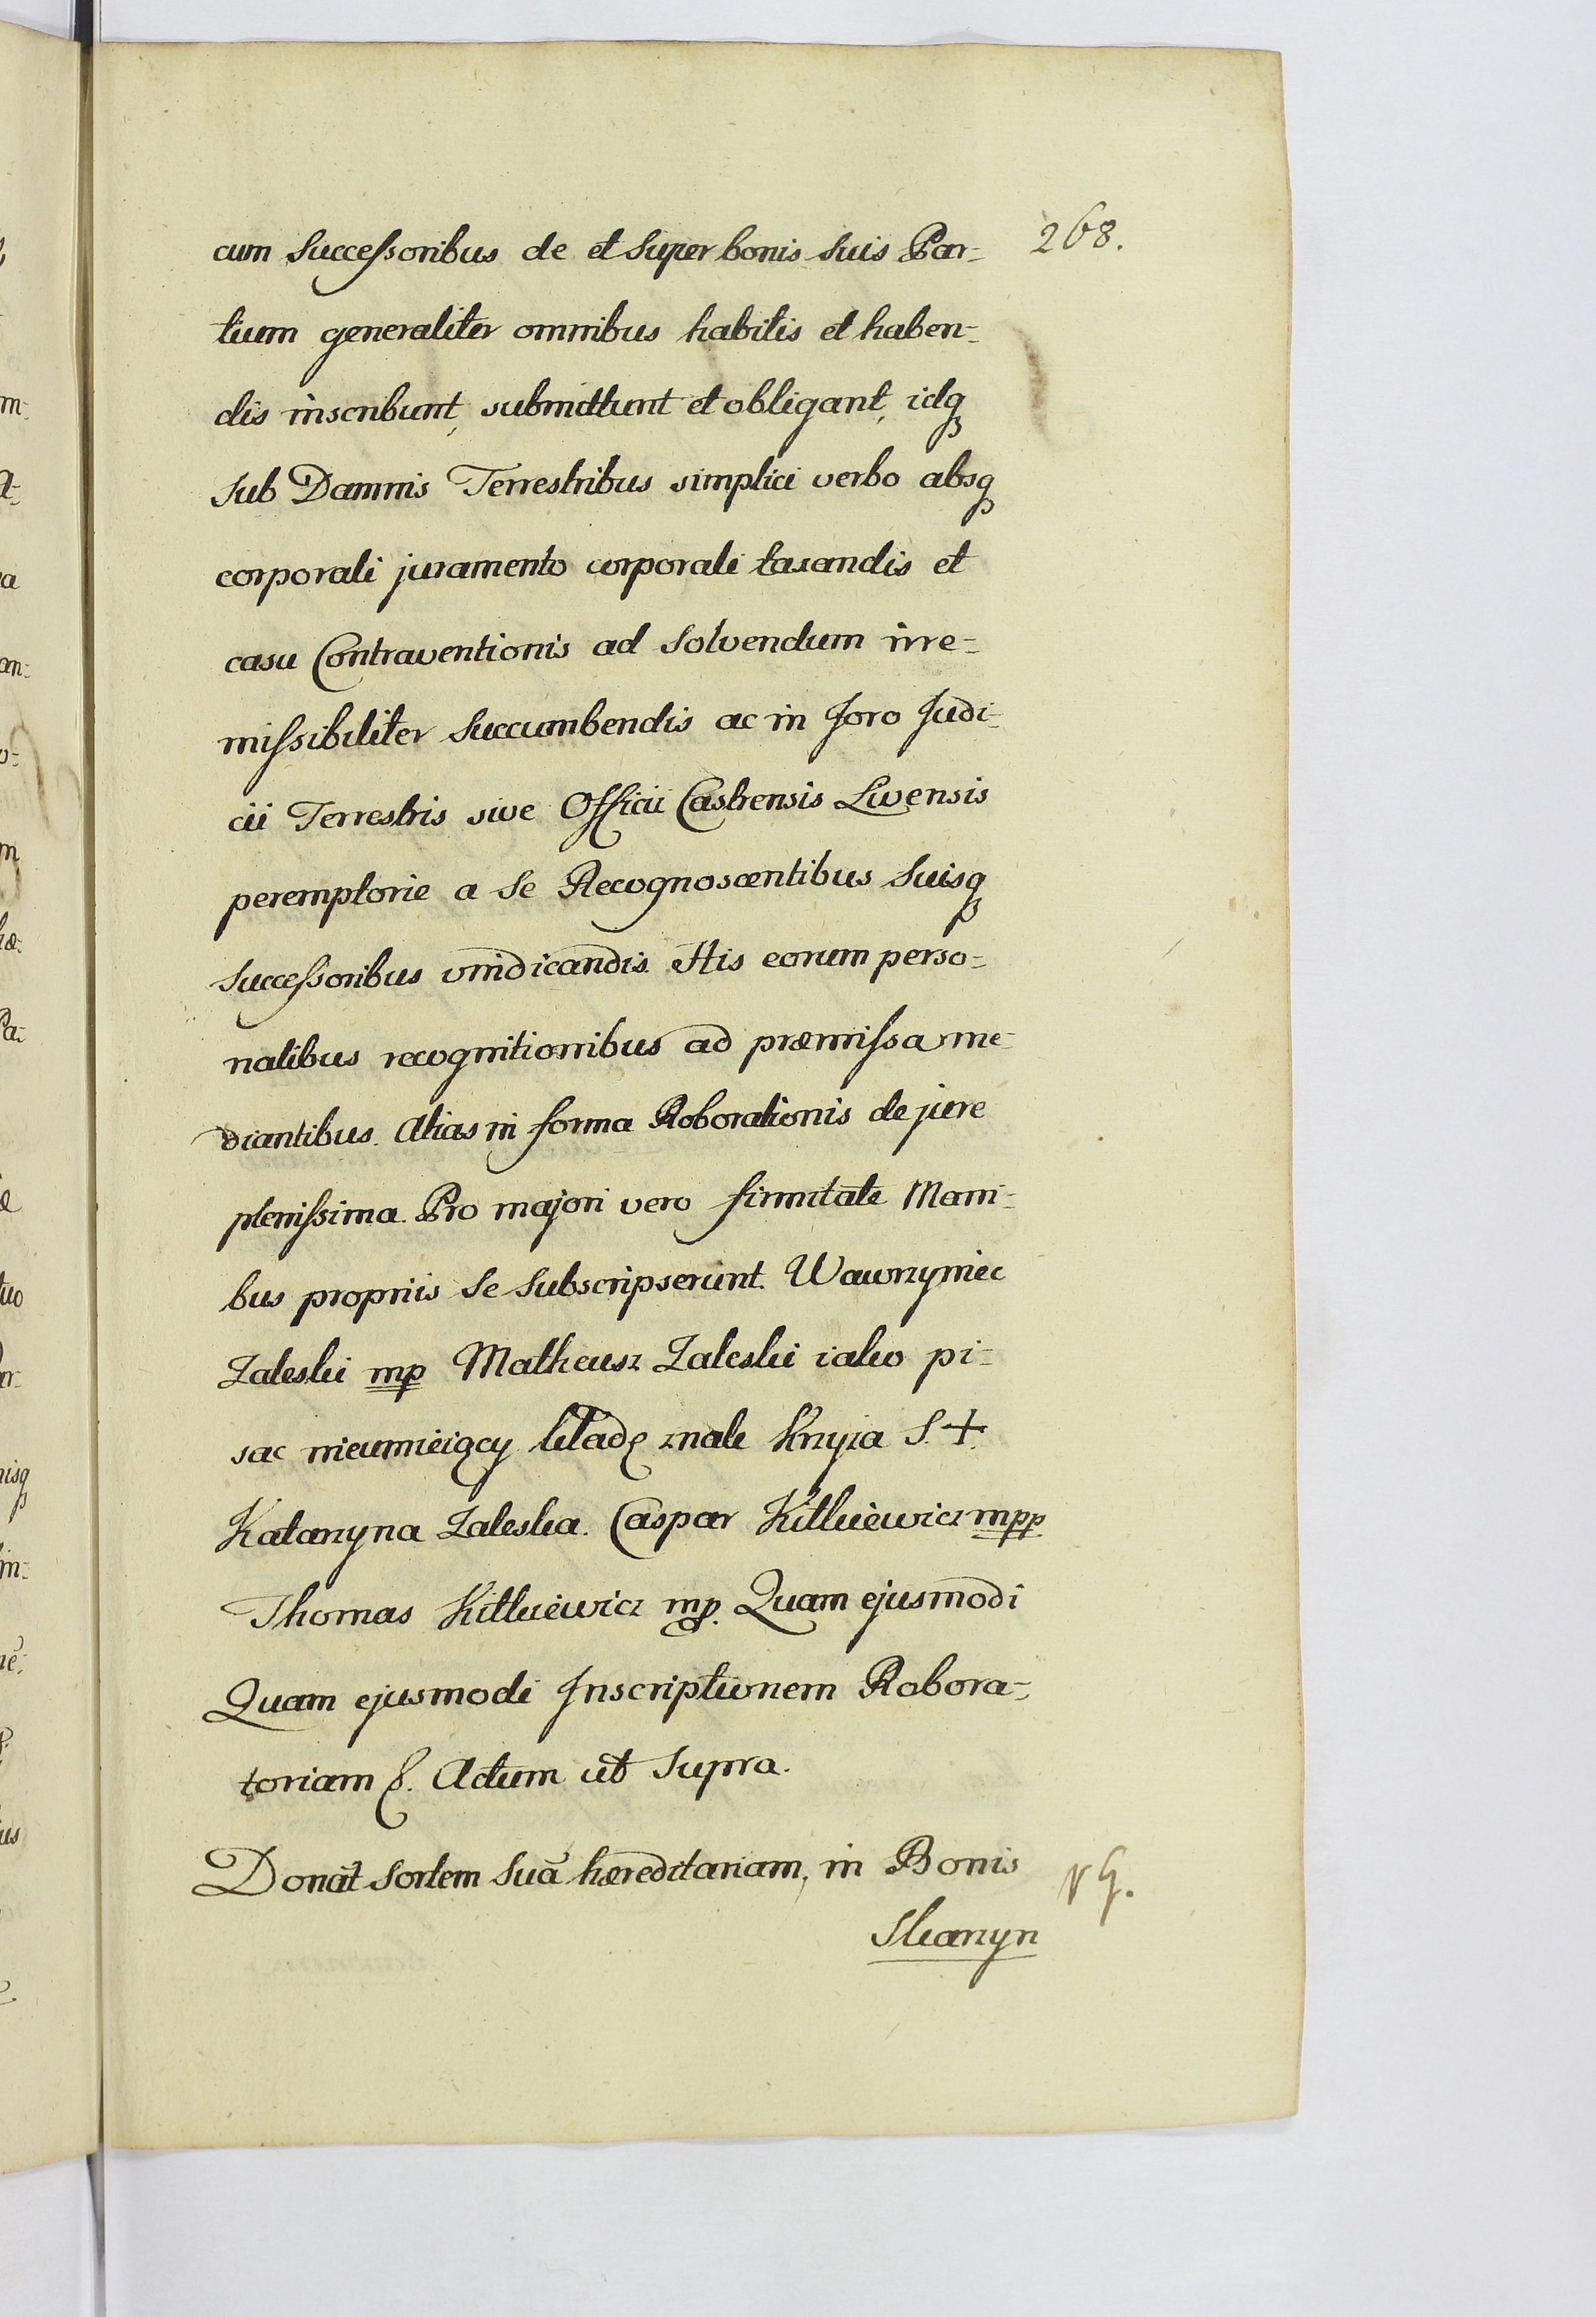 268.
cum Successoribus de et Super bonis Suis Par-
tium generaliter omnibus habitis et haben-
dis inscribunt, submittunt et obligant, idq
Sub Damnis Terrestribus simplici verbo absq
corporali juramento corporali taxandis et
casu Contraventionis ad Solvendum irre-
missibiliter Succumbendis ac in Foro Judi-
cii Terrestris sive Officii Castrensis Livensis
peremptorie a Se Recognoscentibus Suisq
Successoribus vindicandis. His eorum perso-
nalibus recognitionibus ad præmissa me-
diantibus. Alias in forma Roborationis de jure
plenissima. Pro majori vero firmitate Mani-
bus propriis Se Subscripserunt. Wawrzyniec
Zaleski mp Matheusz Zaleski iako pi-
sac nieumieiącÿ kładę znak Krzyza S. +.
Katarzyna Zaleska. Caspar Kitkiewicz mpp
Thomas Kitkiewicz mp. Quam ejusmodi
Quam ejusmodi Inscriptionem Robora-
toriam &. Actum ut Supra.
Donat Sortem Suã hæreditariam, in Bonis
Skarzyn